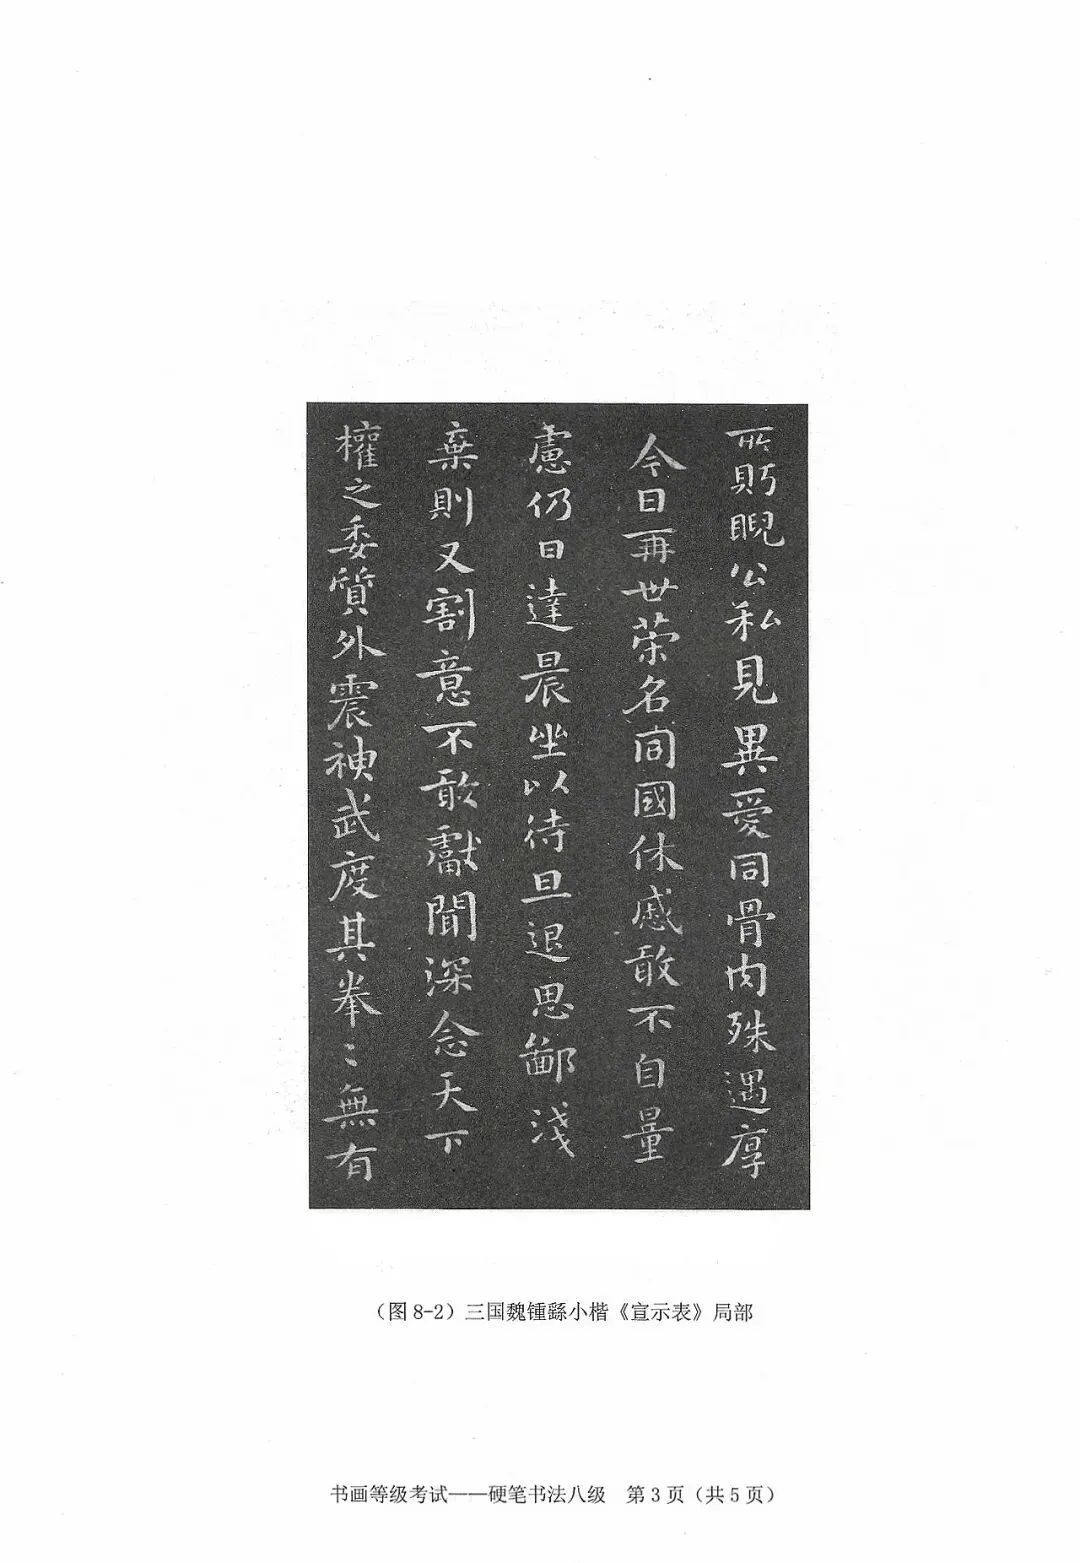 所眄睨公私見異愛同骨肉殊遇厚
今日再世荣名同國休慼敢不自量
慮仍日達晨坐以待旦退思鄙淺
棄則又割意不敢獻聞深念天下
權之委質外震神武度其拳〻無有
（图 8-2）三国魏锺繇小楷《宣示表》局部
书画等级考试——硬笔书法八级　第 3 页（共 5 页）